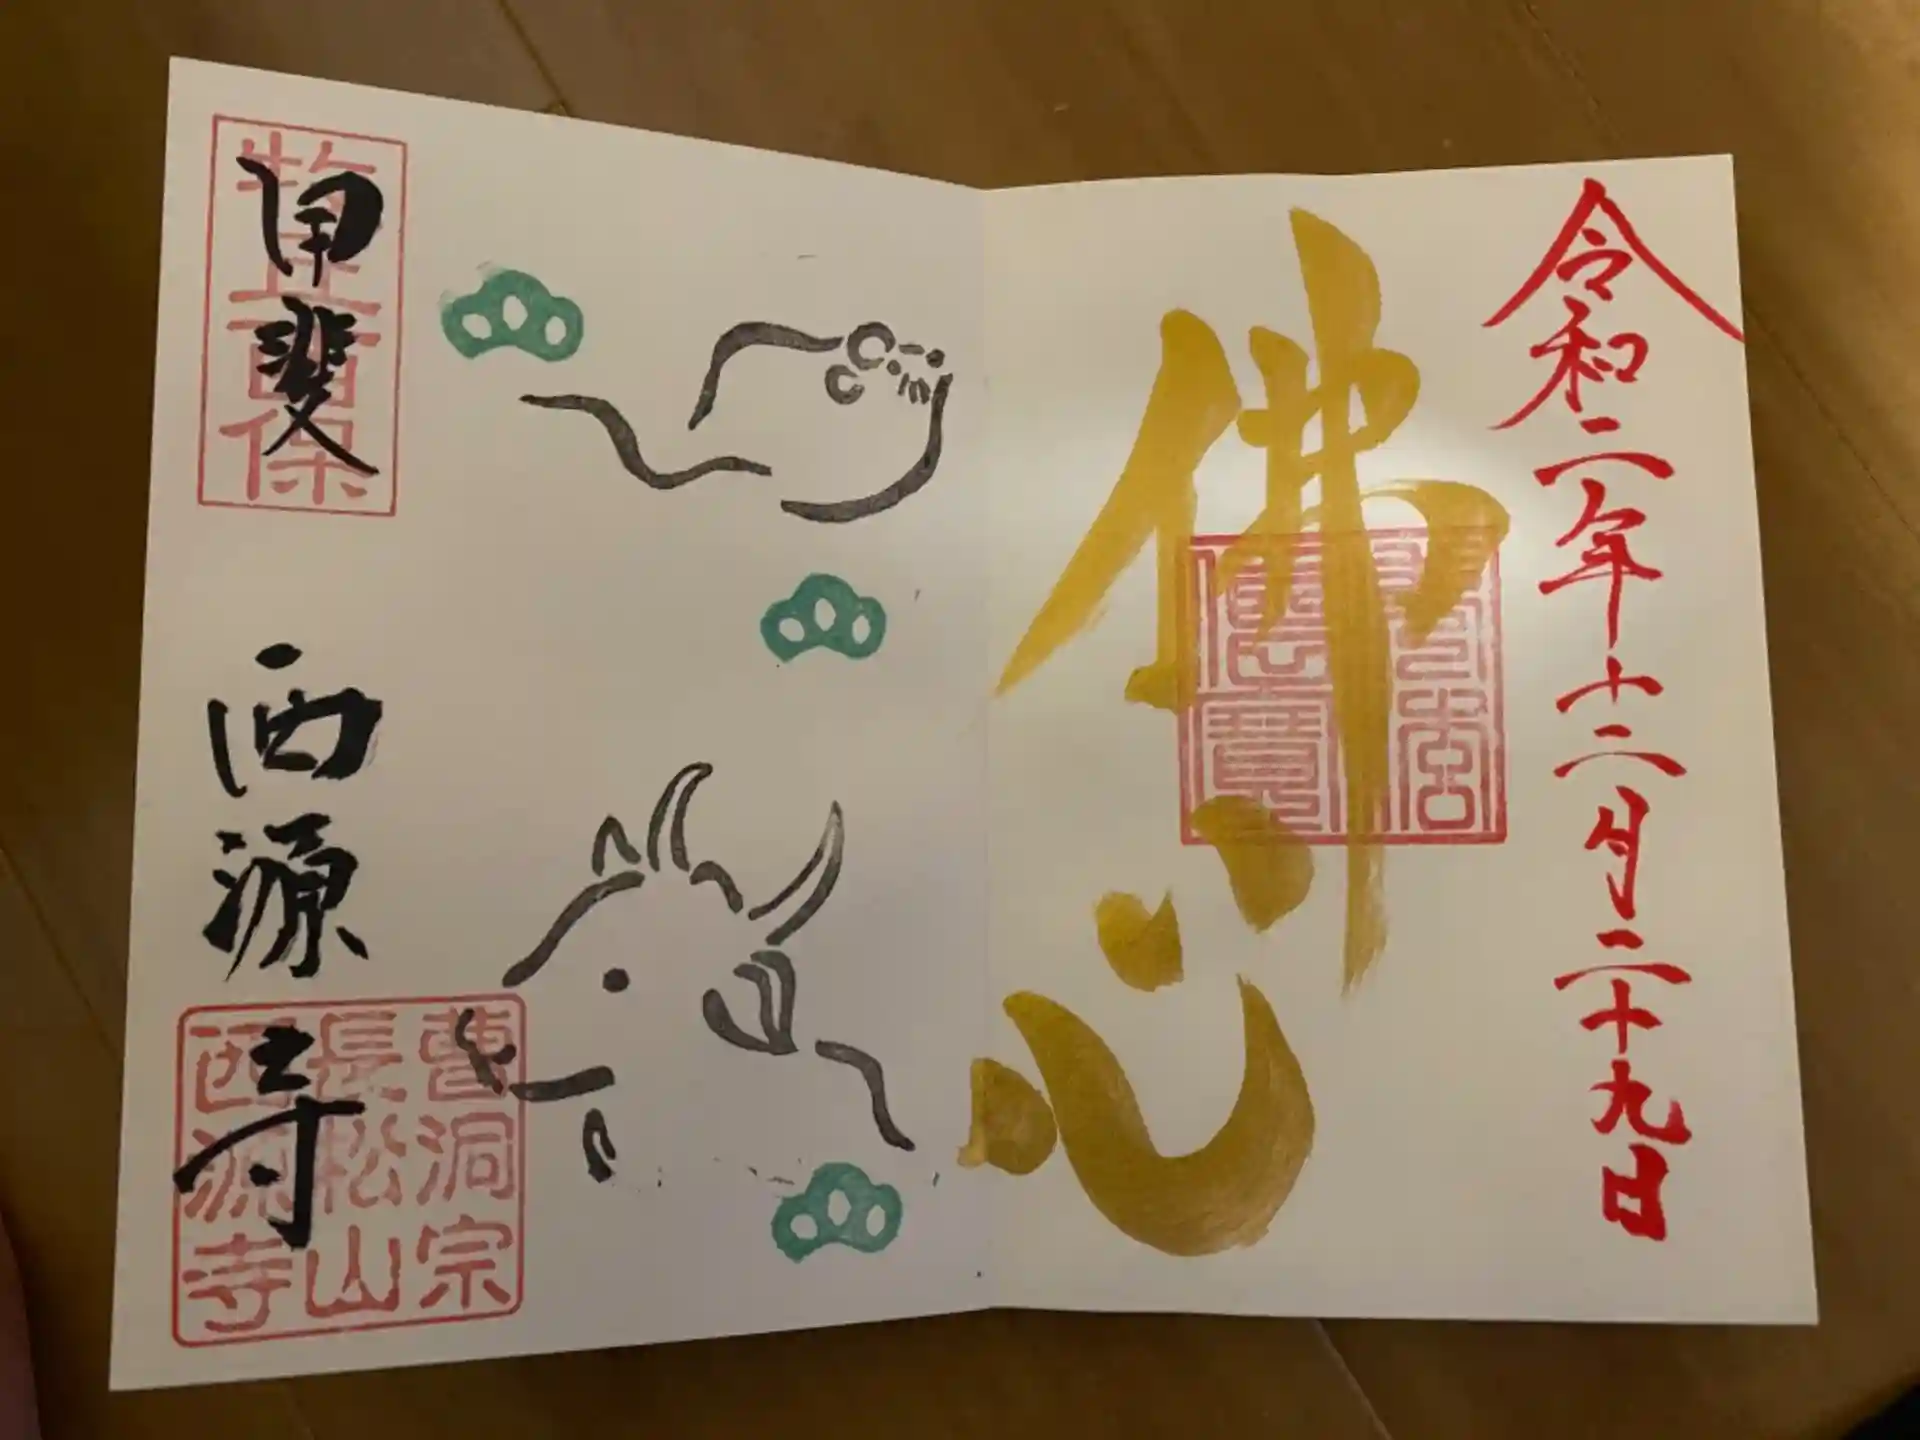 令和二年十二月二十九日
佛心
甲斐
西源寺
曹洞宗
長松山
西源寺